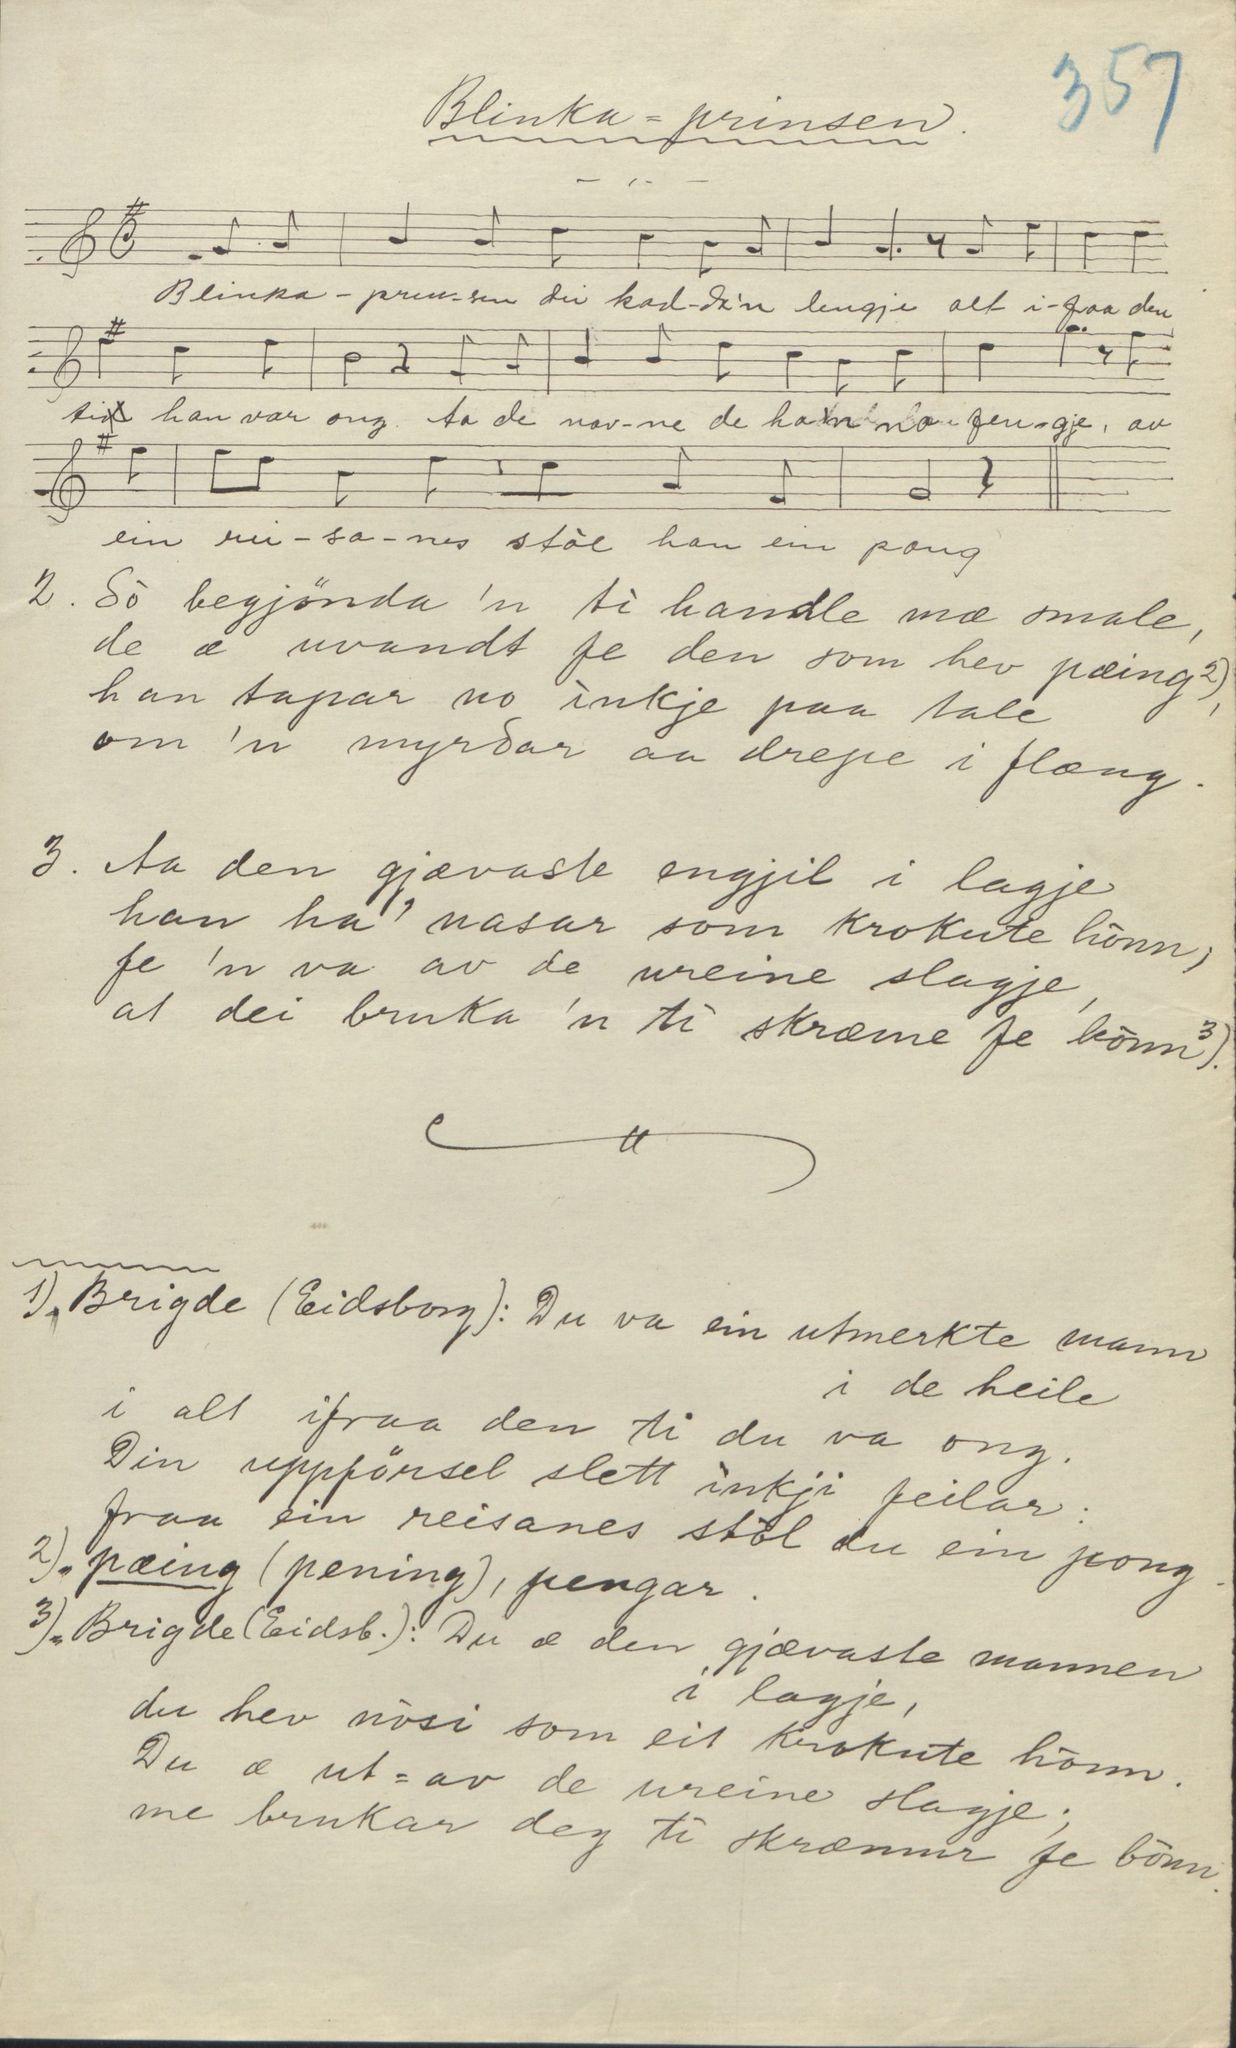 357
Blinka=prinsen.
Blinka-prin-sen dei kad-da'n lengje alt i-fraa den
ti han var ong. Aa de nav-ne de ha'n no fen-gje, av
ein rei-sa-nes stòl han ein pong
2. Sò begjönda 'n ti handle mæ smale,
de æ uvandt fe den som hev pæing2),
han tapar no inkje paa tale
om 'n myrdar aa drepe i flæng.
3. Aa den gjævaste engjil i lagje
han ha' nasar som krokute hònn;
fe 'n va av de ureine slagje,
at dei bruka 'n ti skræme fe bònn3).
1). Brigde (Eidsborg): Du va ein utmerkte mann
i de heile
i alt ifraa den ti du va ong.
Din uppförsel slett inkji feilar:
fraa ein reisanes stòl du ein pong.
2). pæing (pening), pengar.
3). Brigde (Eidsb.): Du æ den gjævaste mannen
i lagje,
du hev nòsi som eit krokute hònn.
Du æ ut=av de ureine slagje;
me brukar deg ti skræmur fe bònn.